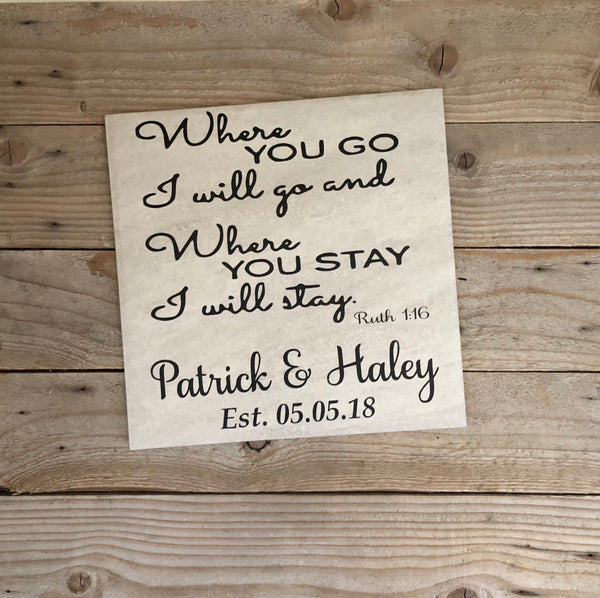 Where
YOU GO
I will go and
Where
YOU STAY
I will stay.
Ruth 1:16
Patrick & Haley
Est. 05.05.18